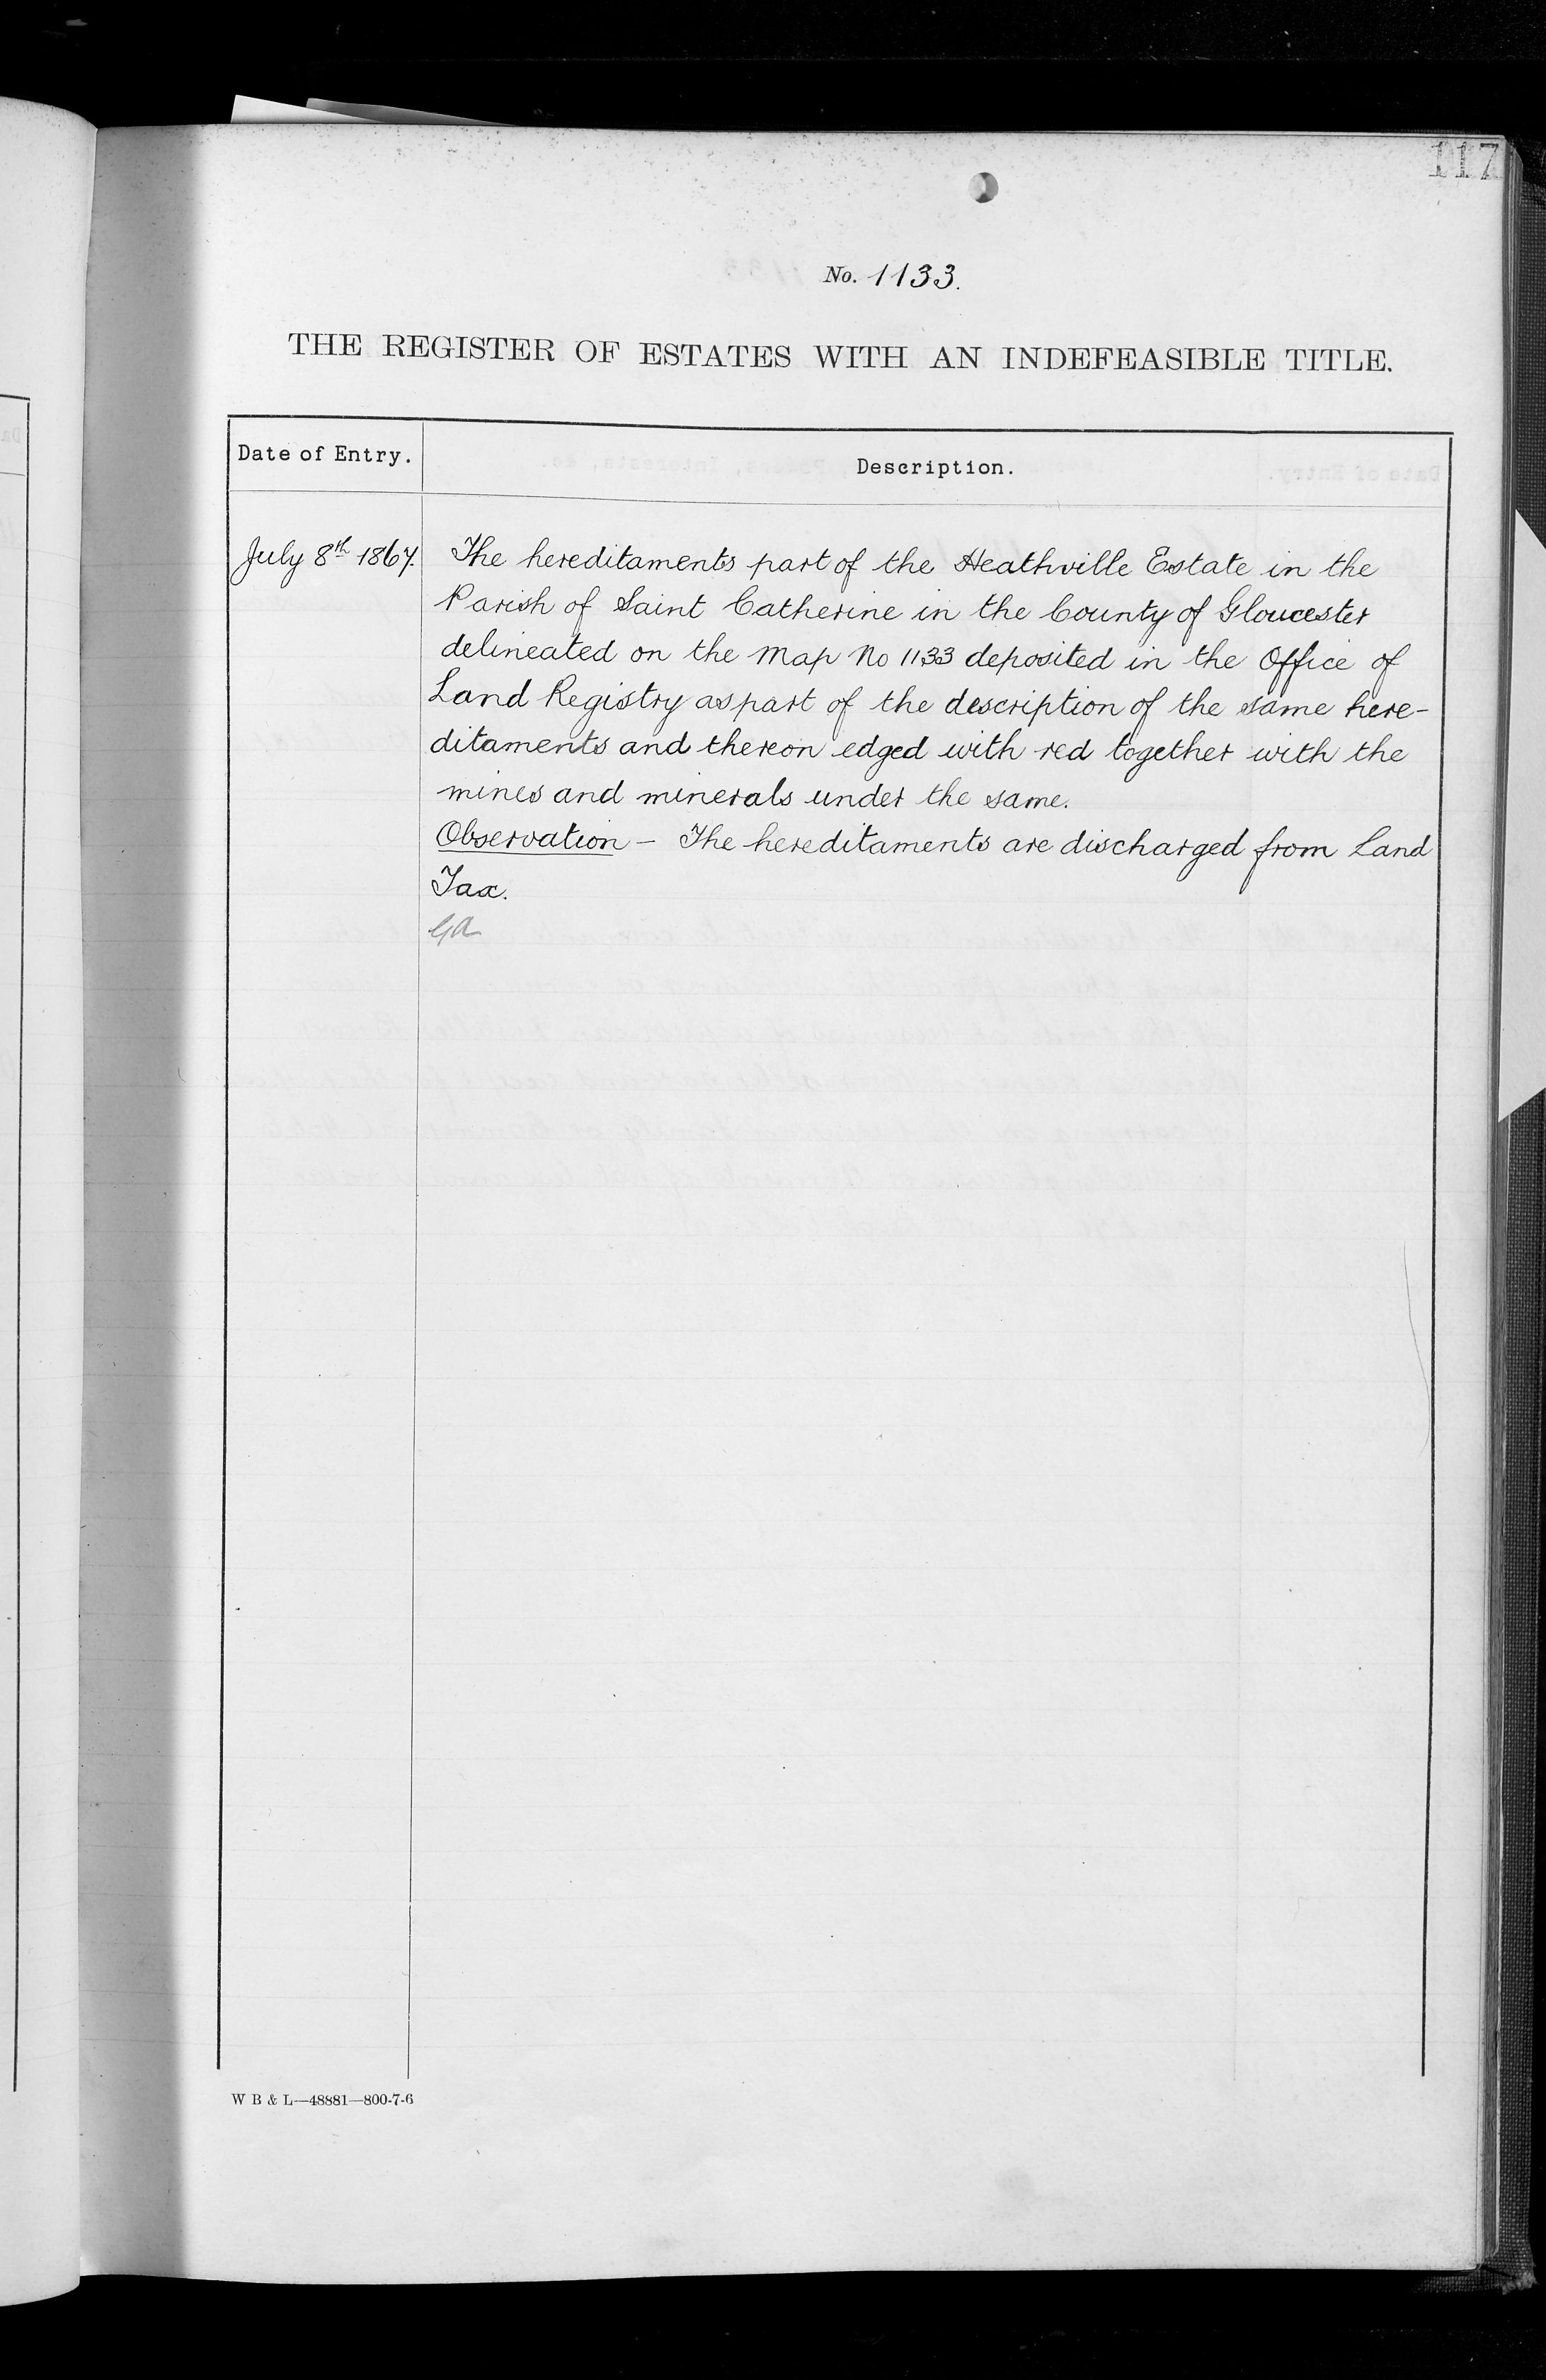 117
No. 1133.
THE REGISTER OF ESTATES WITH AN INDEFEASIBLE TITLE.
Date of Entry. Description.
July 8th 1867. The hereditaments part of the Heathville Estate in the
Parish of Saint Catherine in the County of Gloucester
delineated on the Map No 1133 deposited in the Office of
Land Registry as part of the description of the same here-
ditaments and thereon edged with red together with the
mines and minerals under the same.
Observation – The hereditaments are discharged from Land
Tax.
W B & L—48881—800-7-6